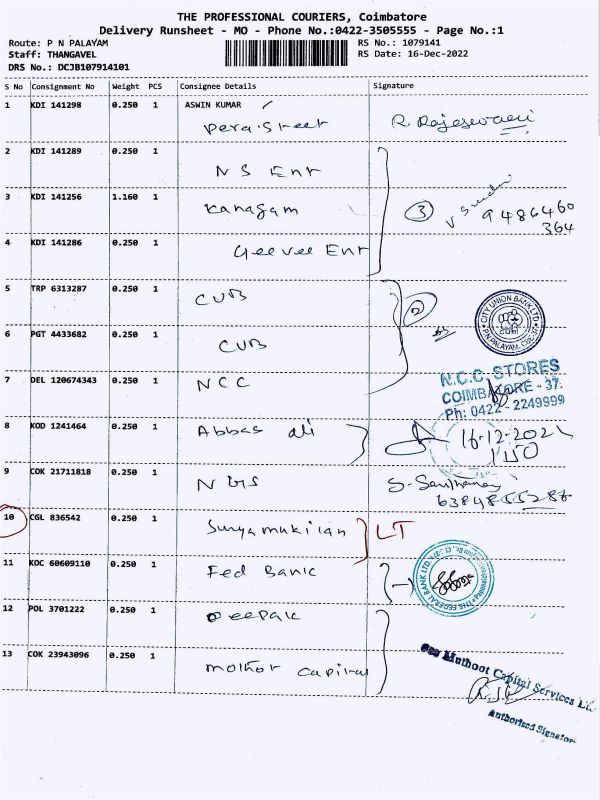 THE PROFESSIONAL COURIERS, Coimbatore
Delivery Runsheet - MO - Phone No.:0422-3505555 - Page No.:1
Route: P N PALAYAM RS No.: 1079141
Staff: THANGAVEL RS Date: 16-Dec-2022
DRS No.: DCJB107914101
S No Consignment No Weight PCS Consignee Details Signature
1 KDI 141298 0.250 1 ASWIN KUMAR
R. Rajeswari
2 KDI 141289 0.250 1
N S Ent
3 KDI 141256 1.160 1 Kanagam
3 9486460
364
4 KDI 141286 0.250 1 Geevee Ent
5 TRP 6313287 0.250 1 CUB
2
CITY UNION BANK LTD
P.N.PALAYAM
6 PGT 4433682 0.250 1 CUB
7 DEL 120674343 0.250 1 NCC
N.C.C. STORES
COIMBATORE - 37.
Ph: 0422 - 2249999
8 KOD 1241464 0.250 1 Abbas ali
16-12-202
1150
9 COK 21711818 0.250 1
10 CGL 836542 0.250 1 Suryamukilan LT
11 KOC 60609110 0.250 1 Fed Bank
THE FEDERAL BANK LTD.
12 POL 3701222 0.250 1 Deepak
13 COK 23943096 0.250 1 Mothot Capital
Muthoot Capital Services Ltd.
Authorised Signatory